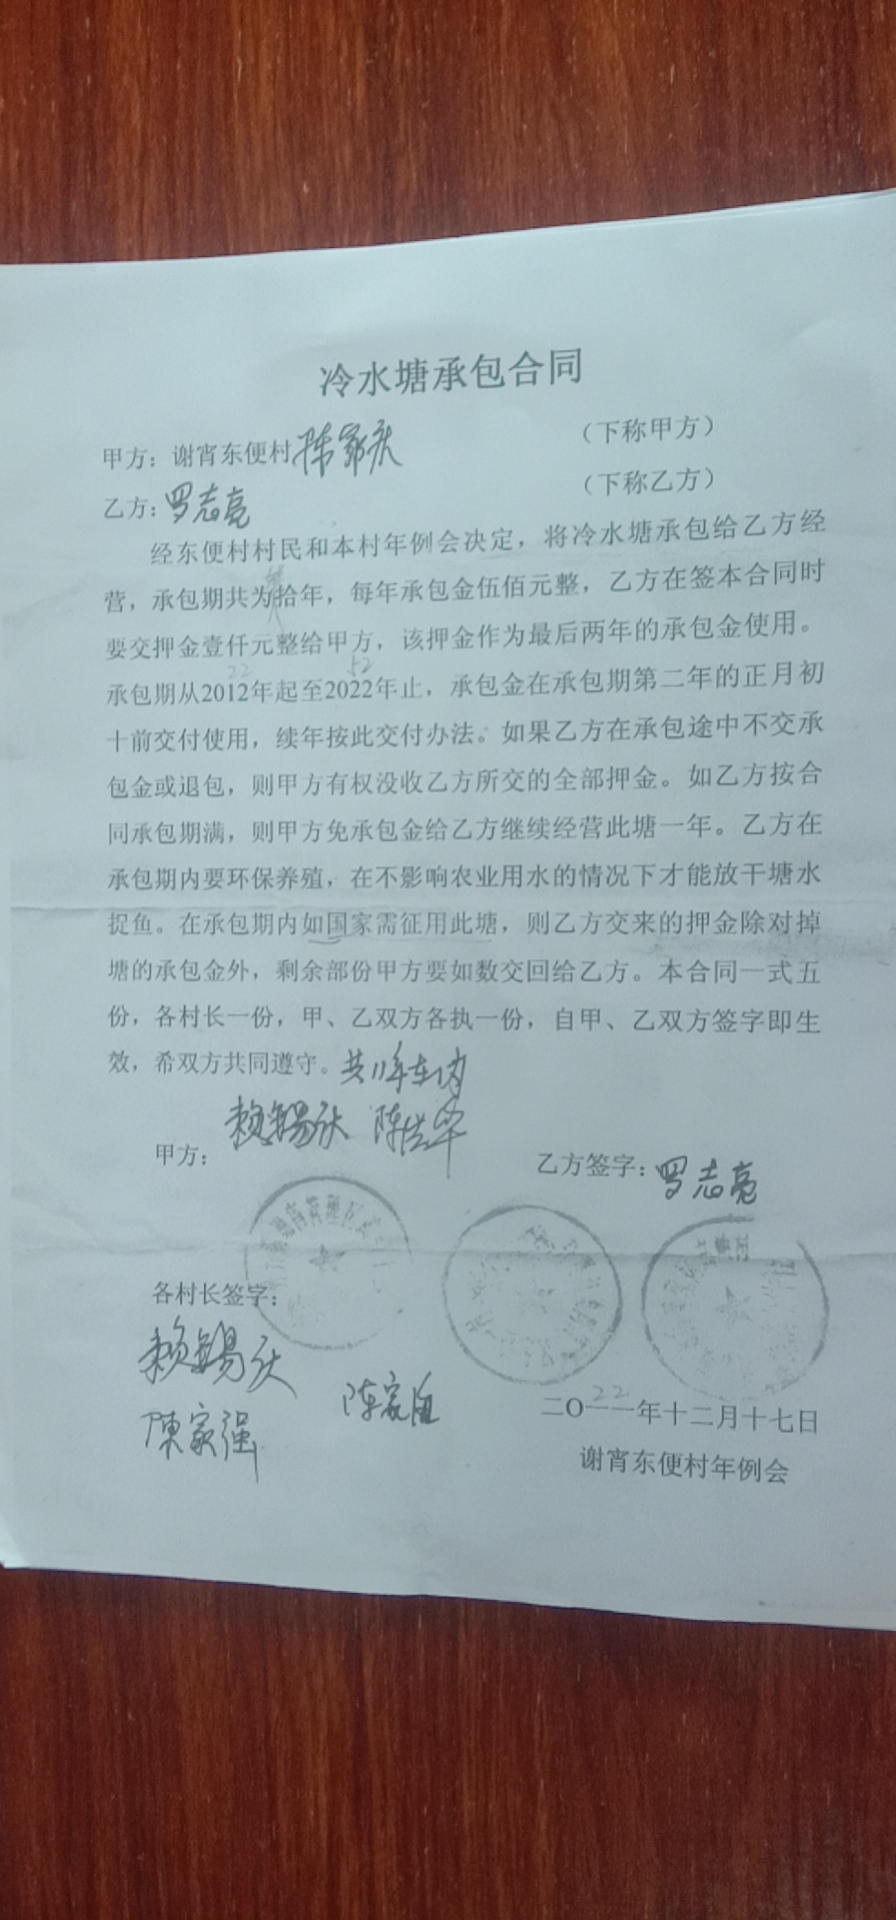 冷水塘承包合同
甲方：谢宵东便村陈家庆 （下称甲方）
乙方：罗志亮 （下称乙方）
经东便村村民和本村年例会决定，将冷水塘承包给乙方经
营，承包期共为拾年，每年承包金伍佰元整，乙方在签本合同时
要交押金壹仟元整给甲方，该押金作为最后两年的承包金使用。
22 52
承包期从2012年起至2022年止，承包金在承包期第二年的正月初
十前交付使用，续年按此交付办法。如果乙方在承包途中不交承
包金或退包，则甲方有权没收乙方所交的全部押金。如乙方按合
同承包期满，则甲方免承包金给乙方继续经营此塘一年。乙方在
承包期内要环保养殖，在不影响农业用水的情况下才能放干塘水
捉鱼。在承包期内如国家需征用此塘，则乙方交来的押金除对掉
塘的承包金外，剩余部份甲方要如数交回给乙方。本合同一式五
份，各村长一份，甲、乙双方各执一份，自甲、乙双方签字即生
效，希双方共同遵守。共11年在内
甲方：赖锡庆 陈世华
乙方签字：罗志亮
各村长签字：
赖锡庆
陈家
陳家强
22
二〇一一年十二月十七日
谢宵东便村年例会